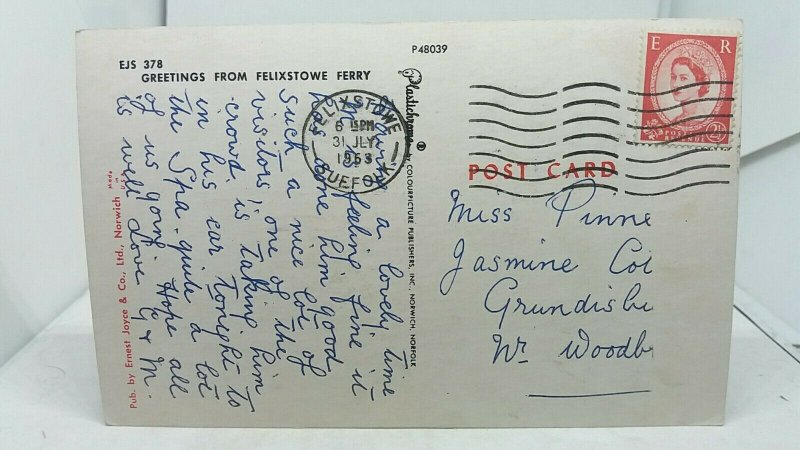 EJS 378
GREETINGS FROM FELIXSTOWE FERRY
P48039
Plastichrome ® by COLOURPICTURE PUBLISHERS, INC., NORWICH, NORFOLK
Pub. by Ernest Joyce & Co., Ltd., Norwich Made in U.S.A.
FELIXSTOWE
6 15PM
31 JLY
1963
SUFFOLK
E R
POSTAGE REVENUE
2½
POST CARD
Miss Pinne
Jasmine Cot
Grundisbu
Nr. Woodb
Having a lovely time
feeling fine it
done him good
such a nice lot of
visitors, one of the
crowd is taking him
in his car tonight to
the Spa. quite a lot
of us going. Hope all
is well love G & M.